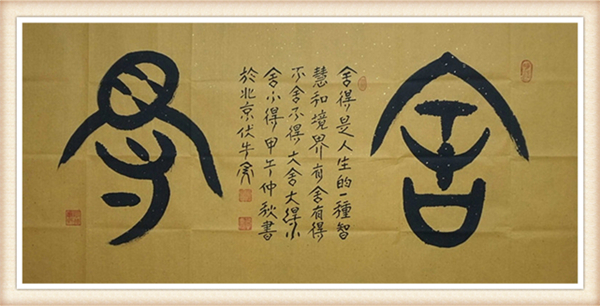 舍得
舍得是人生的一種智
慧和境界有舍有得
不舍不得大舍大得小
舍小得甲午仲秋書
於北京伏牛